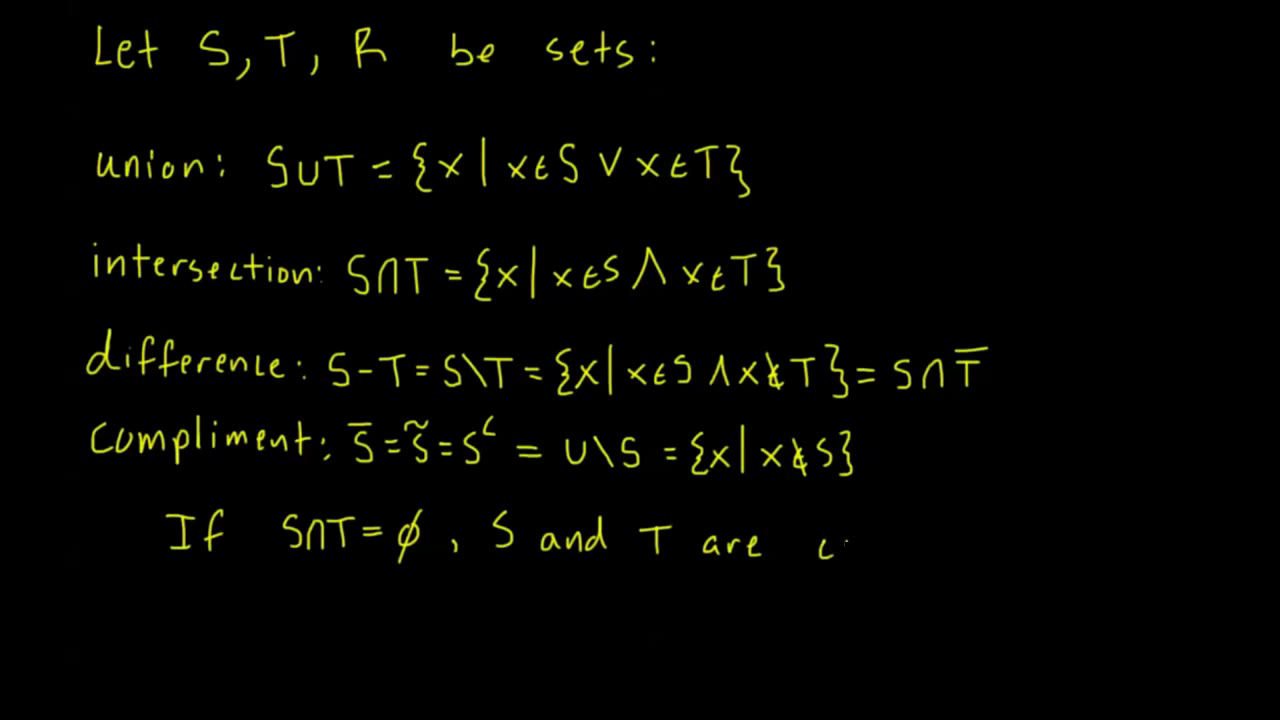 Let S, T, R be sets:
union: S∪T = {x | x∈S ∨ x∈T}
intersection: S∩T = {x | x∈S ∧ x∈T}
difference: S-T = S\T = {x | x∈S ∧ x∉T} = S∩T̅
compliment: S̅ = S̃ = Sᶜ = U\S = {x | x∉S}
If S∩T = ∅, S and T are